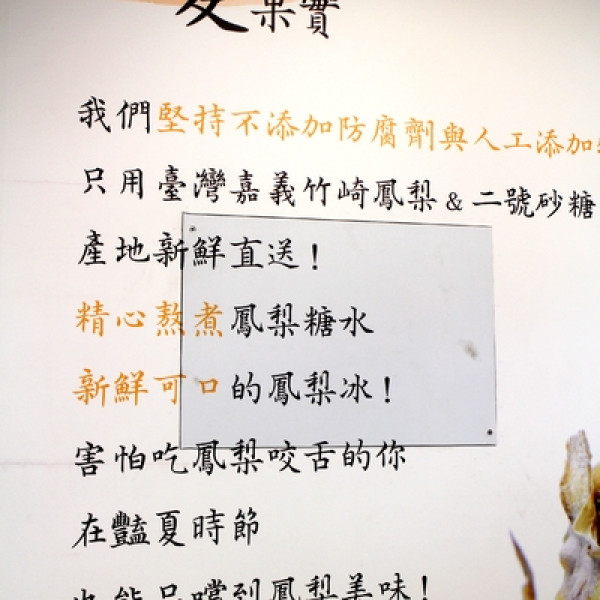 果實
我們堅持不添加防腐劑與人工添加
只用臺灣嘉義竹崎鳳梨&二號砂糖
產地新鮮直送！
精心熬煮鳳梨糖水
新鮮可口的鳳梨冰！
害怕吃鳳梨咬舌的你
在豔夏時節
也能品嚐到鳳梨美味！